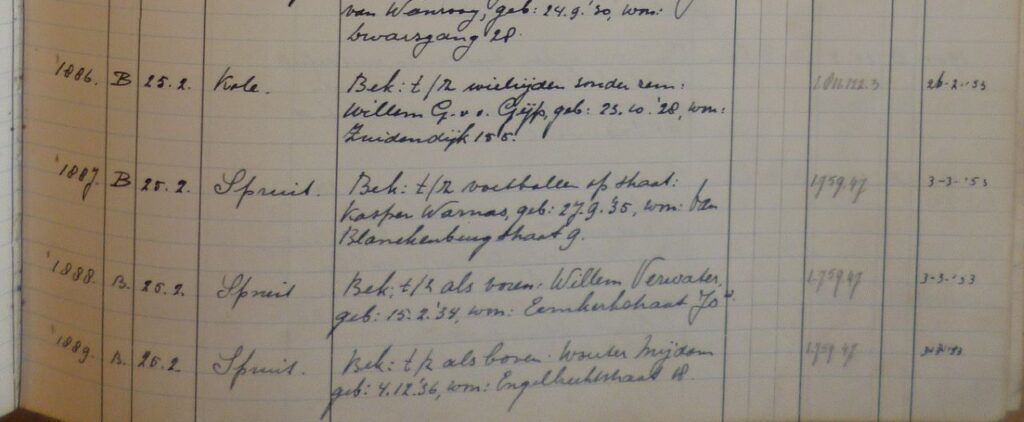 van Wanrooy, geb: 24.9.'30, won:
Dwarsgang 28.
1886. B 25.2. Kole. Bek: t/z wielrijden zonder rem: 26-2-'53
Willem G. v.d. Gijp, geb: 23.10.'28, won:
Zuidendijk 155.
1887. B 25.2. Spruit. Bek: t/z voetballen op straat: 1759.47 3-3-'53
Kasper Warnas, geb: 27.9.'35, won: Van
Blanckenburgstraat 9.
1888. B. 25.2. Spruit Bek: t/z als boven: Willem Verwater, 1759.47 3-3-'53
geb: 15.2.'34, won: Eemkerkstraat 70
1889. B. 25.2. Spruit. Bek: t/z als boven: Wouter 1759.47
geb: 4.12.'36, won: Engelbrechtstraat 18.